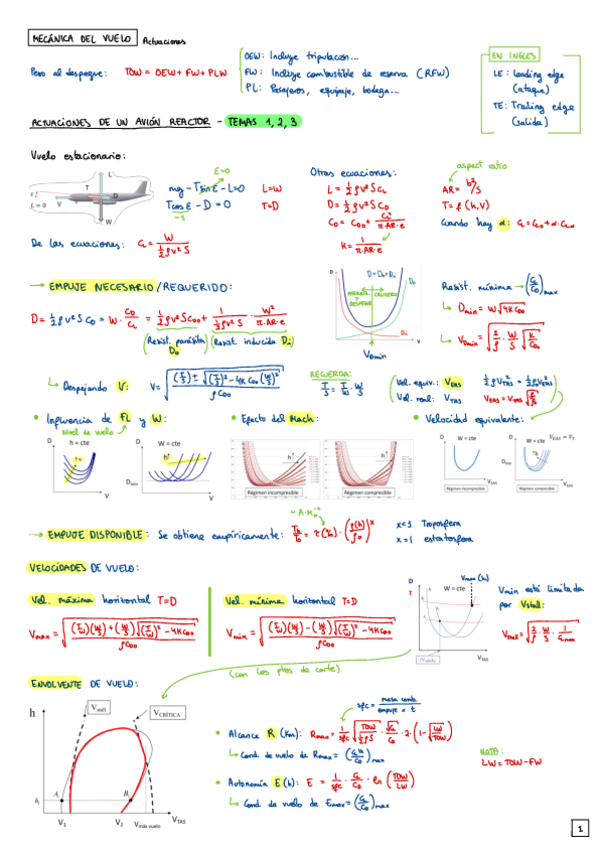 MECÁNICA DEL VUELO Actuaciones
Peso al despegue: TOW = OEW + FW + PLW
OEW: Incluye tripulación...
FW: Incluye combustible de reserva (RFW)
PL: Pasajeros, equipaje, bodega...
EN INGLES
LE: Leading edge
(ataque)
TE: Trailing edge
(salida)
ACTUACIONES DE UN AVIÓN REACTOR - TEMAS 1, 2, 3
Vuelo estacionario:
L
T
D
V
W
ε=0
mg - T sin ε - L=0 L=W
T cos ε - D = 0 T=D
Otras ecuaciones:
L = ½ρv²SC_L
D = ½ρv²SC_D
C_D = C_D0 + C_L²/(π·AR·e)
K = 1/(π·AR·e)
aspect ratio
AR = b²/S
T = f(h,V)
Cuando hay α:
De las ecuaciones: C_L = W/(½ρv²S)
→ EMPUJE NECESARIO/REQUERIDO:
D = ½ρv²S C_D = W · C_D/C_L = ½ρv²S C_D0 + 1/(½ρv²S) · W²/(π·AR·e)
(Resist. parásita D₀) (Resist. inducida Di)
D
V
VDmin
Resist. mínima → (C_L/C_D)max
Dmin = W√(4KC_D0)
VDmin = √(2/ρ · W/S · √(K/C_D0))
Despejando V: V = √(((T/S) ± √((T/S)² - 4KC_D0(W/S)²))/(ρC_D0))
RECUERDA:
T/S = T/W · W/S
Vel. equiv.: VEAS
Vel. real: VTAS
• Influencia de FL y W:
nivel de vuelo
h = cte
W = cte
h↑
Dmin
• Efecto del Mach:
Régimen incompresible
Régimen compresible
• Velocidad equivalente:
W = cte
VTAS
Régimen incompresible
Régimen compresible
→ EMPUJE DISPONIBLE: Se obtiene empíricamente:
x<1 Troposfera
x=1 estratosfera
VELOCIDADES DE VUELO:
Vel. máxima horizontal T=D
Vmax = √(((T/W)(W/S) + (W/S)√((T/W)² - 4KC_D0))/(ρC_D0))
Vel. mínima horizontal T=D
Vmin = √(((T/W)(W/S) - (W/S)√((T/W)² - 4KC_D0))/(ρC_D0))
Vmax(h)
W = cte
VTAS
Vmin está limitada
por Vstall:
Vstall = √(2/ρ · W/S · 1/C_Lmax)
(con los ptos de corte)
ENVOLVENTE DE VUELO:
h
Vstall
VCRÍTICA
V₁
V₂
Vmáx vuelo
VTAS
sfc = masa comb./(empuje × t)
• Alcance R (Km): Rmax =
Cond. de vuelo de Rmax =
• Autonomía E (h): E = 1/sfc · C_L/C_D · ln(TOW/LW)
Cond. de vuelo de Emax = (C_L/C_D)max
NOTA:
LW = TOW - FW
1